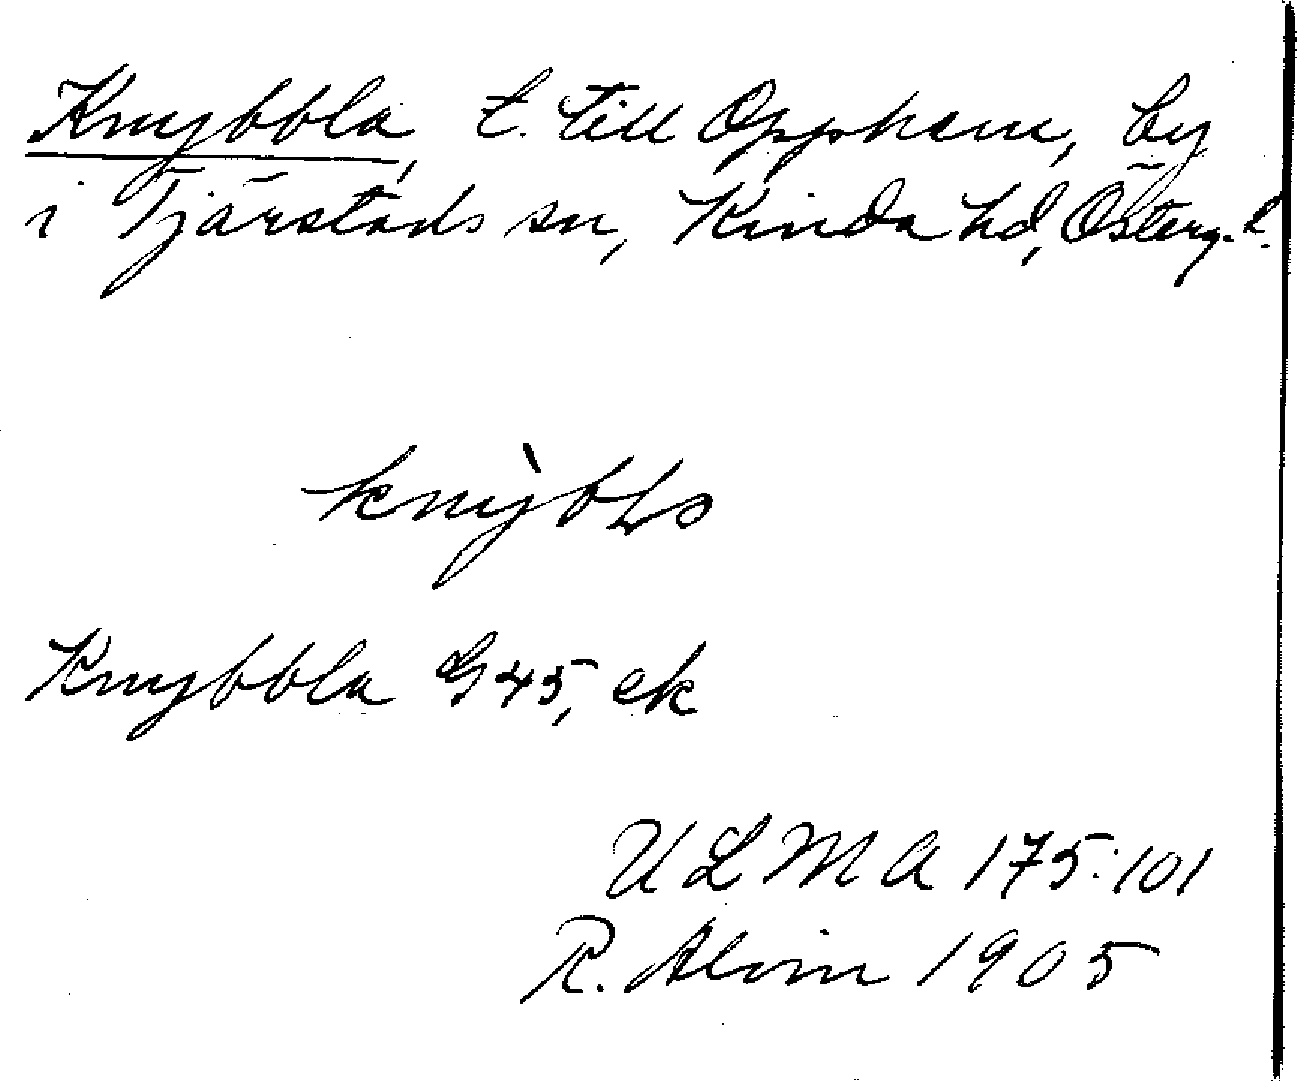 Knybbla, t. till Opphem, by
i Tjärstads sn, Kinda hd, Österg. l.
knỳbLs
Knybbla G 45, ek
ULMA 175:101
R. Alvin 1905